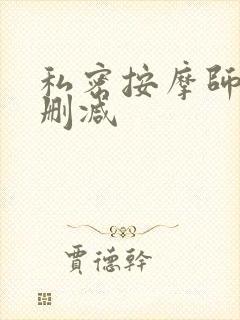 私密按摩師
删减
賈德幹